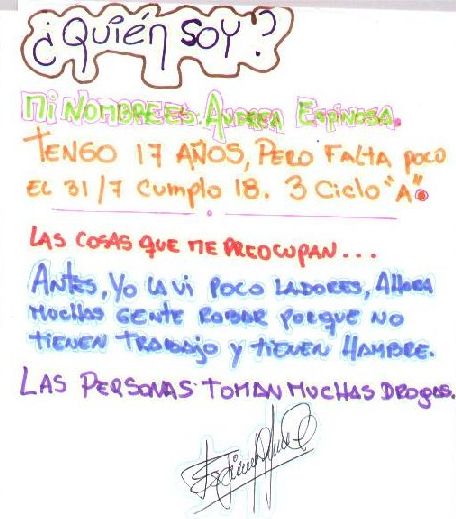 ¿Quién soy?
Mi NOMBRE ES ANDREA ESPINOSA.
TENGO 17 AÑOS, PERO FALTA POCO
EL 31/7 Cumplo 18. 3 Ciclo "A".
LAS COSAS QUE ME PREOCUPAN...
ANTES, YO LA VI POCO LADORES, AHORA
MUCHAS GENTE ROBAR PORQUE NO
TIENEN TRABAJO Y TIENEN HAMBRE.
LAS PERSONAS TOMAN MUCHAS DROGAS.